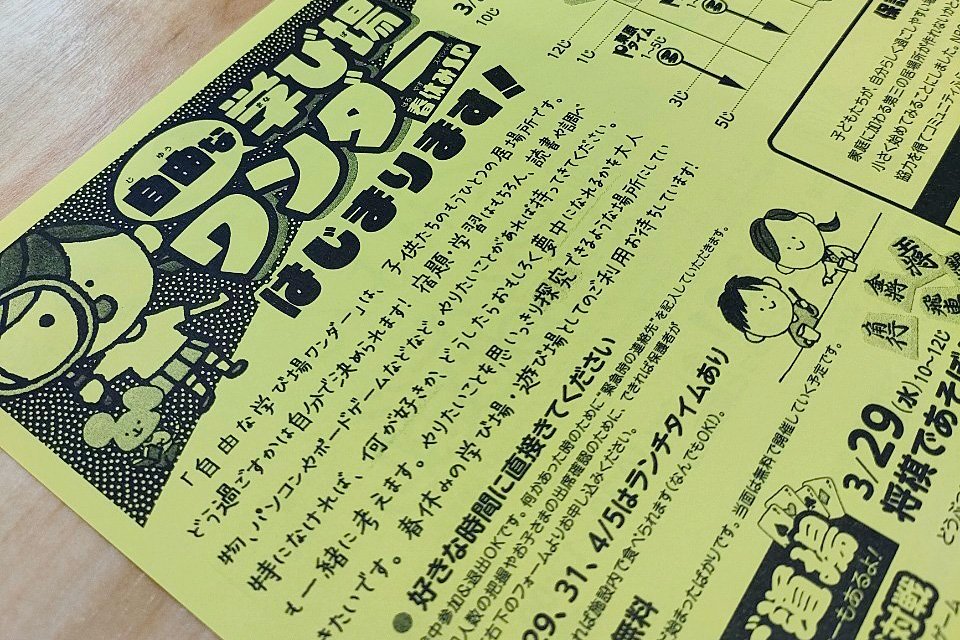 自由な学び場
じゆう
ワンダー
春休みSP
はじまります!!
「自由な学び場ワンダー」は、子供たちのもうひとつの居場所です。
どう過ごすかは自分で決められます！宿題・学習はもちろん、読書や調べ
物、パソコンやボードゲームなどなど。やりたいことがあれば持ってきてください。
特になければ、何が好きか、どうしたらおもしろく夢中になれるかを大人
も一緒に考えます。やりたいことを思いっきり探究できるような場所にしてい
きたいです。春休みの学び場・遊び場としてのご利用お待ちしています！
好きな時間に直接きてください
中参加&退出OKです。何かあった時のために"緊急時の連絡先"を記入していただきます。
人数の把握やお子さまの出席確認のために、できれば保護者が
右下のフォームよりお申し込みください。
29、31、4/5はランチタイムあり
れば施設内で食べられます(なんでもOK)。
無料
始まったばかりです。当面は無料で開催していく予定です。
10じ
12じ
1じ
タイム
1〜5じ
3じ
5じ
子どもたちが、自分らしく過ごしやすい
家庭に加わる第三の居場所が作れないかと
小さく始めてみることにしました。
協力を得てコミュニティ
金将
角行
3/29(水)10〜12じ
将棋であそぼ
道場
もあるよ！